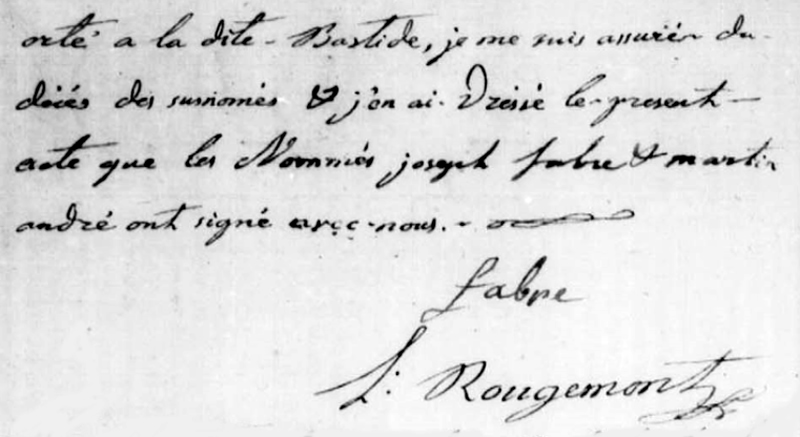 orté a la dite - Bastide, je me suis assurér du
décés des susnomés & j'en ai. Dressé le present -
acte que les Nommés joseph fabre & martin
andré ont signé avec nous. -
fabre
L: Rougemont